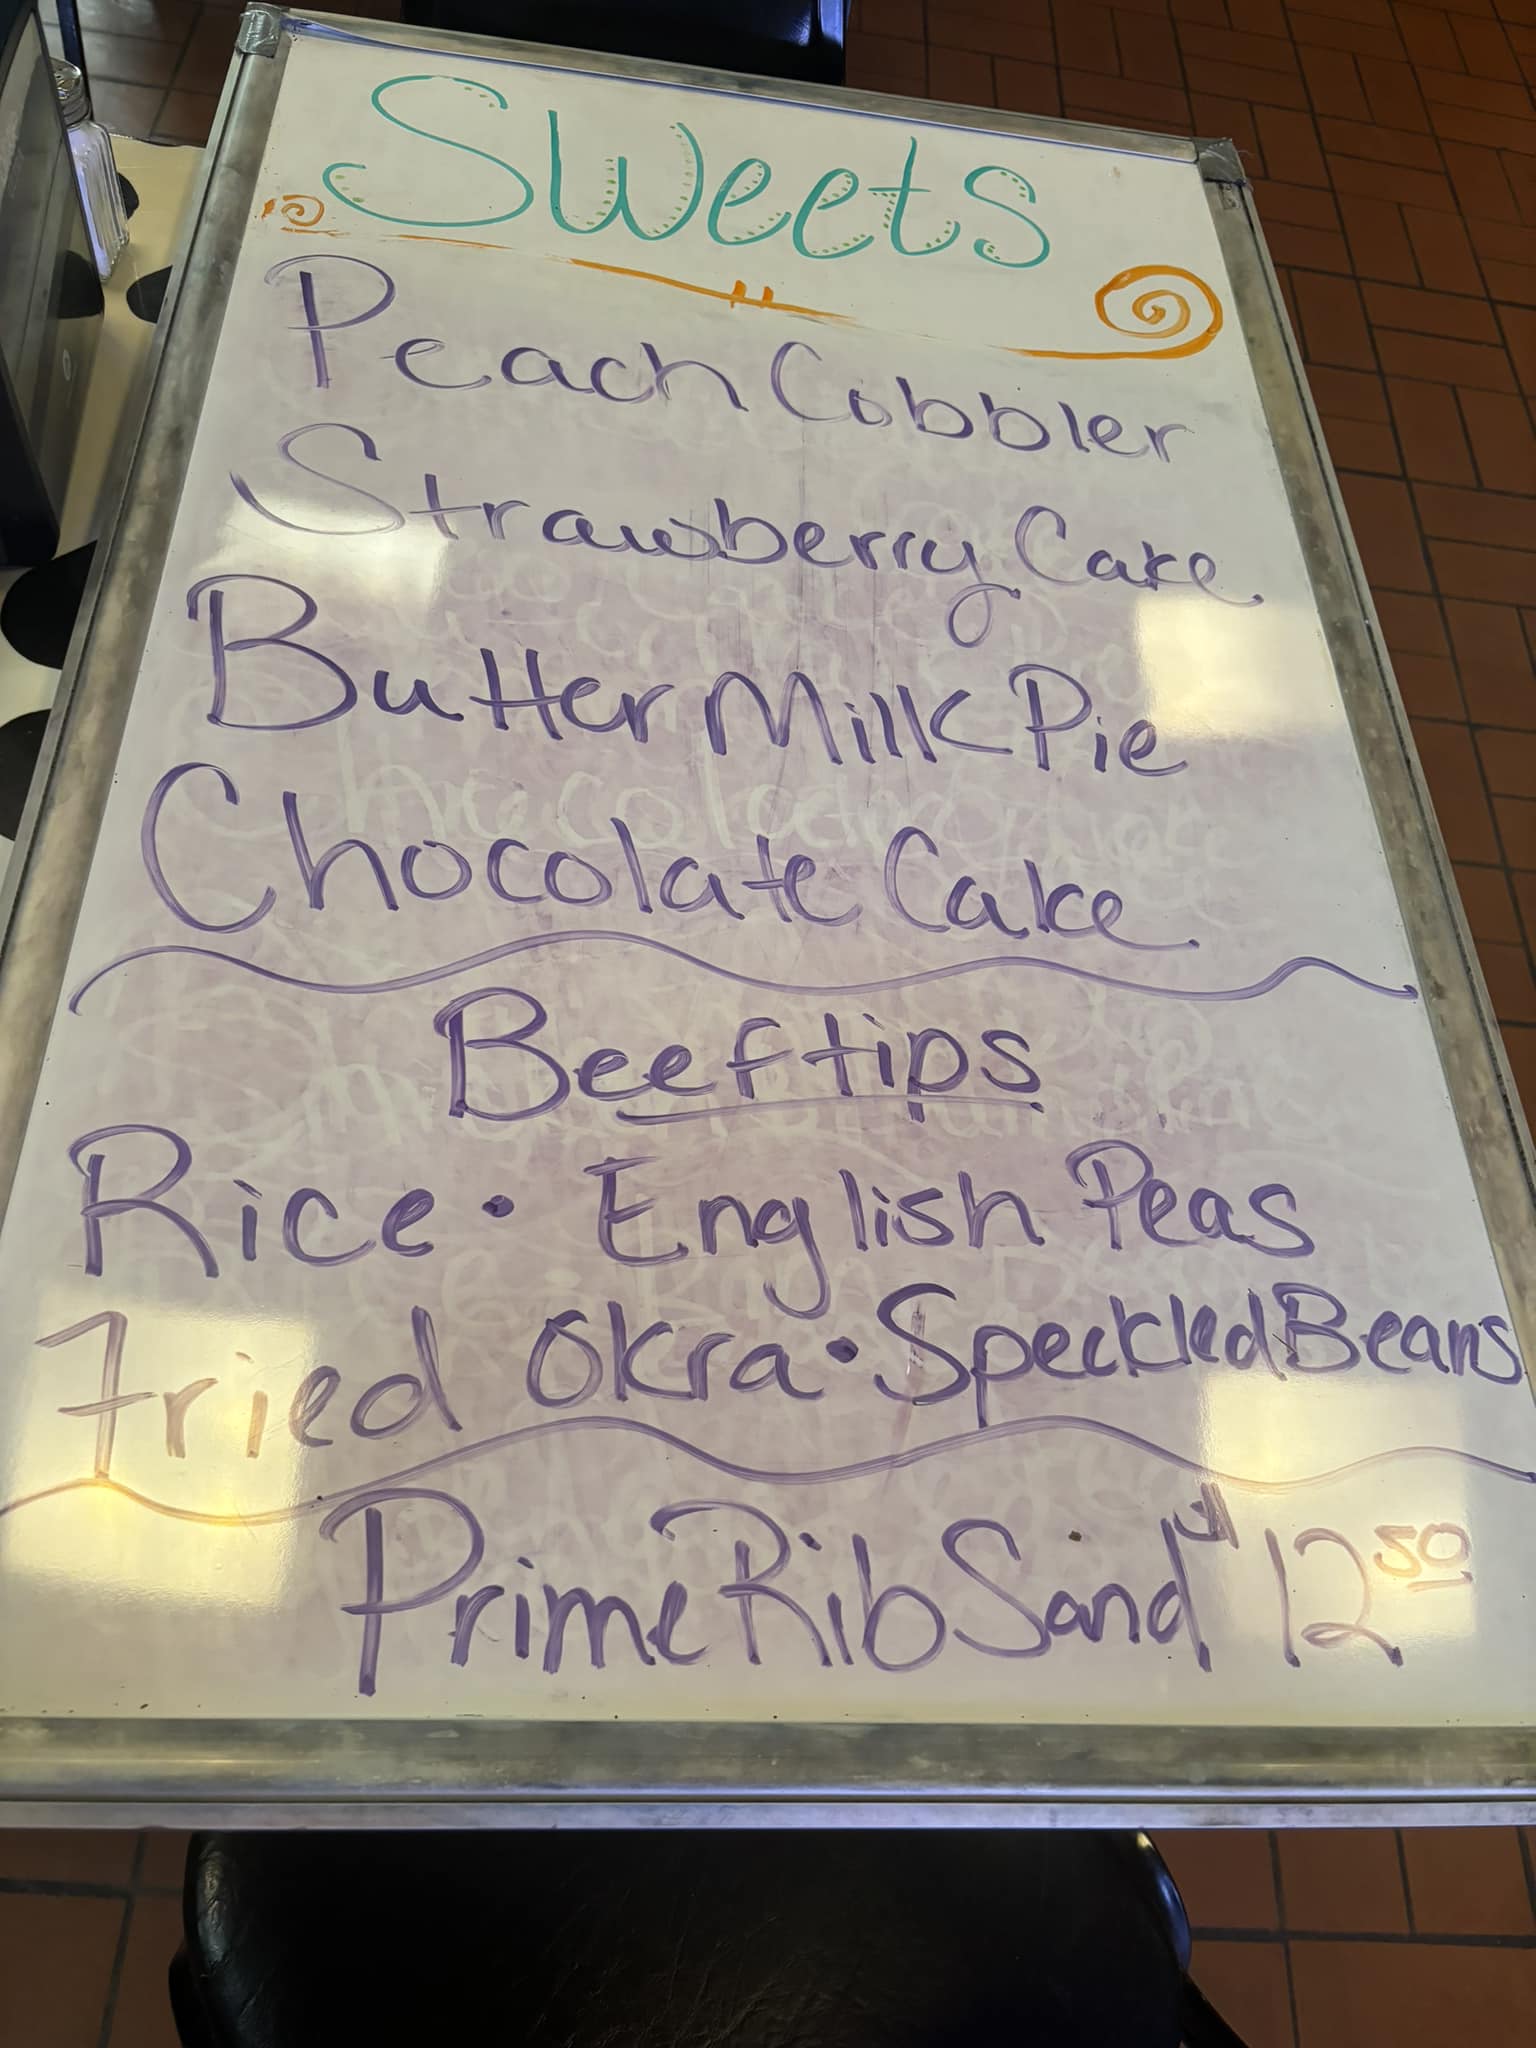 Sweets
Peach Cobbler
Strawberry Cake
ButterMilk Pie
Chocolate Cake
Beef tips
Rice • English Peas
Fried Okra • Speckled Beans
Prime Rib Sandw 12 50